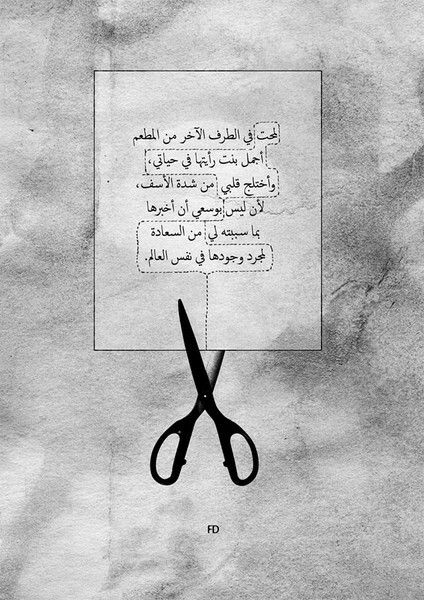 لمحت في الطرف الآخر من المطعم
أجمل بنت رأيتها في حياتي،
وأختلج قلبي من شدة الأسف،
لأن ليس بوسعي أن أخبرها
بما سببته لي من السعادة
لمجرد وجودها في نفس العالم.
FD